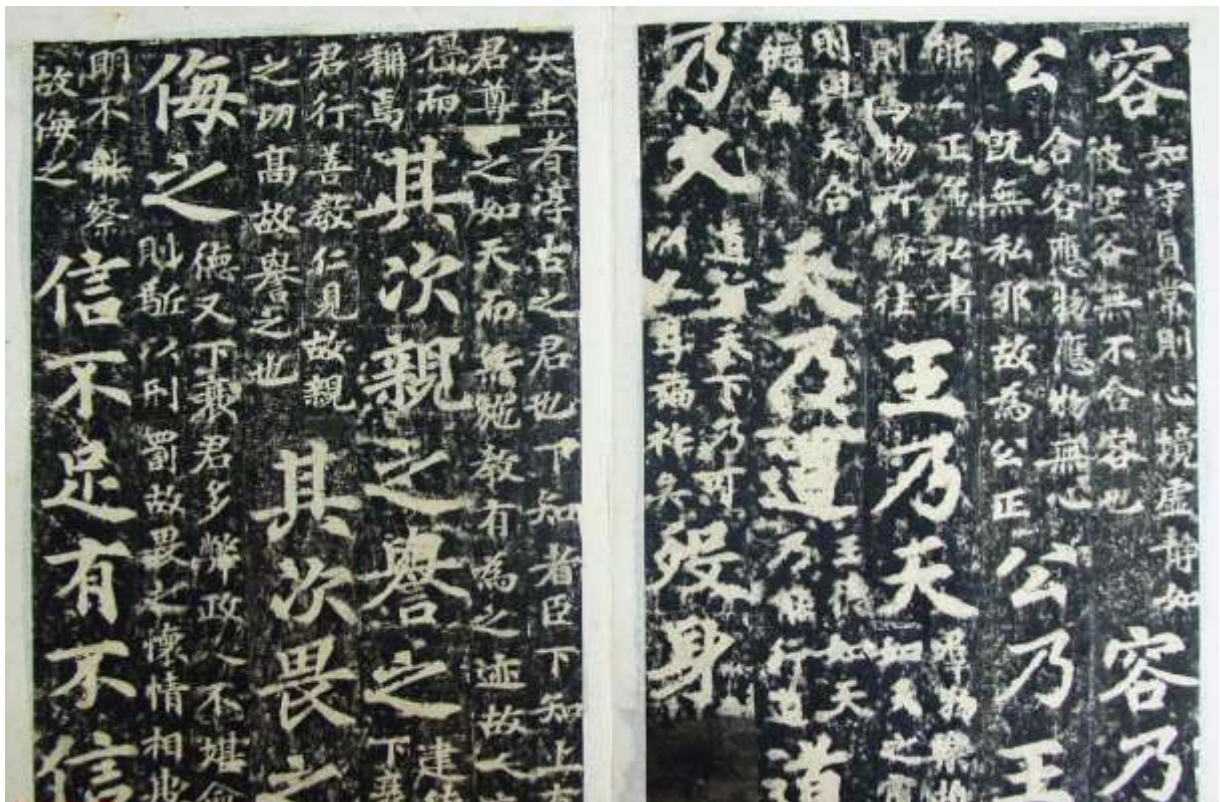 容知守真常則心境虛静如彼空谷無不含容也容乃
公含容應物應物無心既無私邪故為公正公乃王
能公正無私者則為物所歸往王乃天
天合天乃道王德如天乃能行道道
乃久道行天下乃可以久享福祚矣殁身
太上者淳古之君也下知者臣下知上有君尊之如天而無施教有為之迹故人
得而稱焉其次親之譽之
君行善教仁見故親之功高故譽之也其次畏之
侮之德又下衰君多弊政人不堪命則駈以刑罰故畏之懷情相
明不能察故侮之信不足有不信